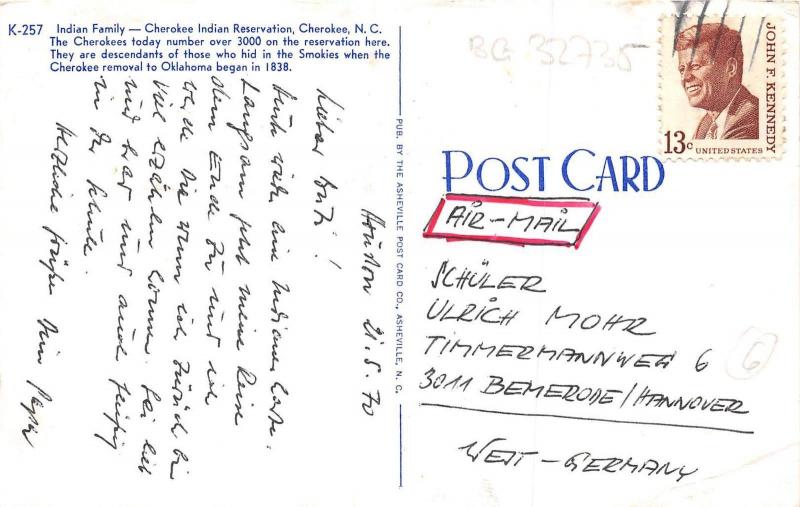 K-257 Indian Family — Cherokee Indian Reservation, Cherokee, N. C.
The Cherokees today number over 3000 on the reservation here.
They are descendants of those who hid in the Smokies when the
Cherokee removal to Oklahoma began in 1838.
Houston 21.5.70
Lieber Uli!
Auch wieder eine Indianerkarte.
Langsam geht meine Reise
dem Ende zu und ich
werde Dir wenn ich zurück bin
viel erzählen können. Sei lieb
und brav und auch fleißig
in der Schule.
Herzliche Grüße Dein
PUB. BY THE ASHEVILLE POST CARD CO., ASHEVILLE, N. C.
BG 32735
JOHN F. KENNEDY
13c UNITED STATES
POST CARD
AIR-MAIL
SCHÜLER
ULRICH MOHR
TIMMERMANNWEG 6
6
3011 BEMERODE/HANNOVER
WEST-GERMANY